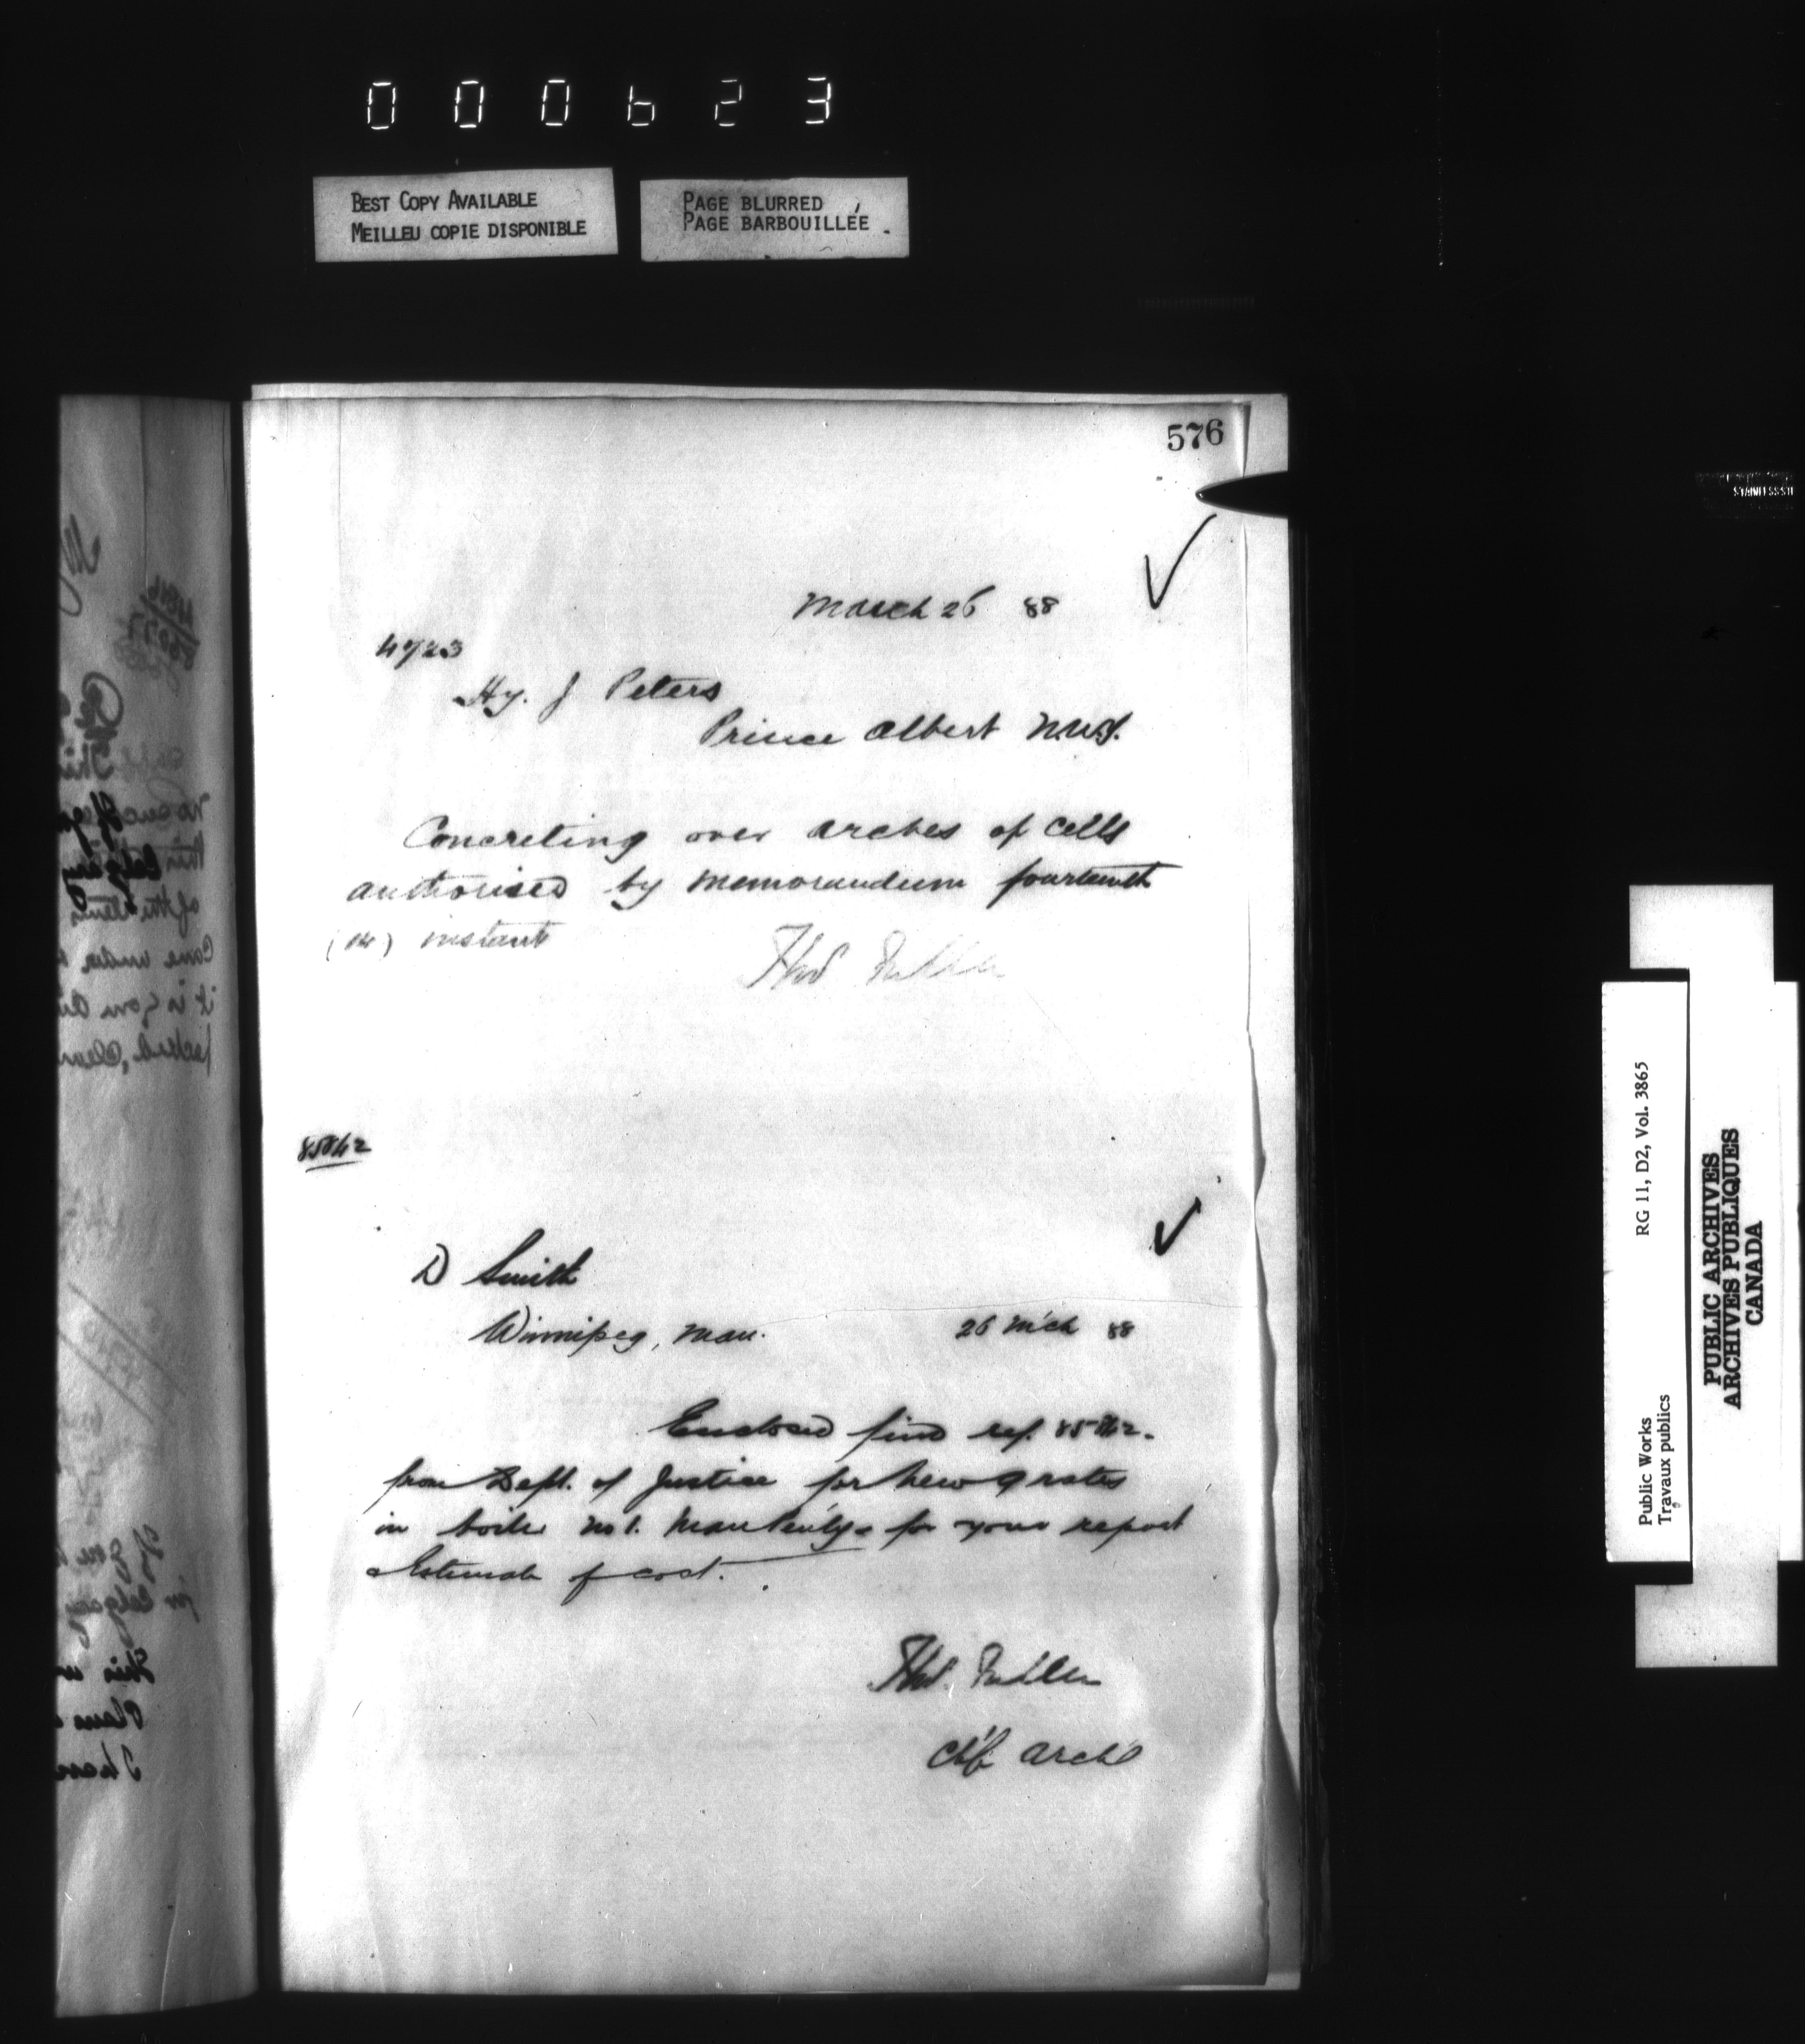 000623
BEST COPY AVAILABLE
MEILLEU COPIE DISPONIBLE
PAGE BLURRED
PAGE BARBOUILLÉE
576
March 26 88
4723
Hy. J Peters
Prince Albert N.W.T.
Concreting over arches of cells
authorised by memorandum fourteenth
(14) instant
Thos Fuller
D Smith
Winnipeg, Man. 26 Mch 88
Enclosed find ref.
from Dept. of Justice for new grates
in boiler No 1. Man Pent'y for your report
& Estimate of cost.
Thos. Fuller
Ch'f Archt
Public Works
Travaux publics
RG 11, D2, Vol. 3865
PUBLIC ARCHIVES
ARCHIVES PUBLIQUES
CANADA